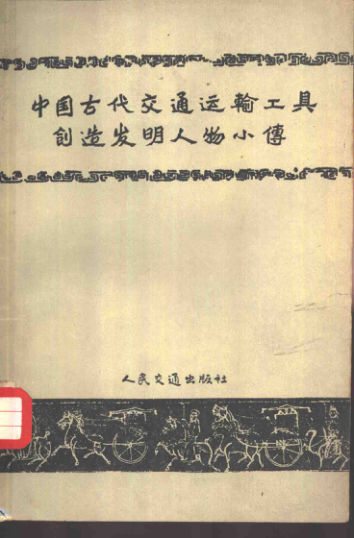 中国古代交通运輸工具
創造发明人物小傳
人民交通出版社